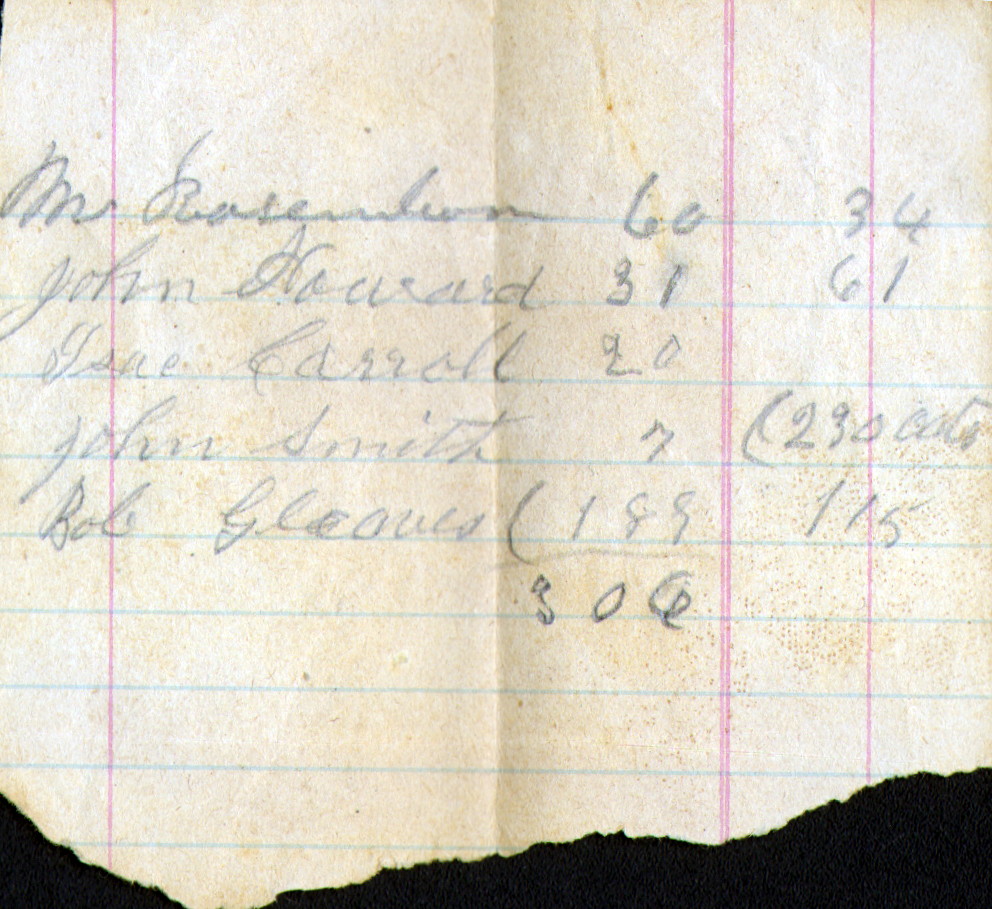 Mr Rosenbom 60 34
John Howard 31 61
Isac Carroll 20
John Smith 7 (230 oats
Bob Gleaves (188 115
306